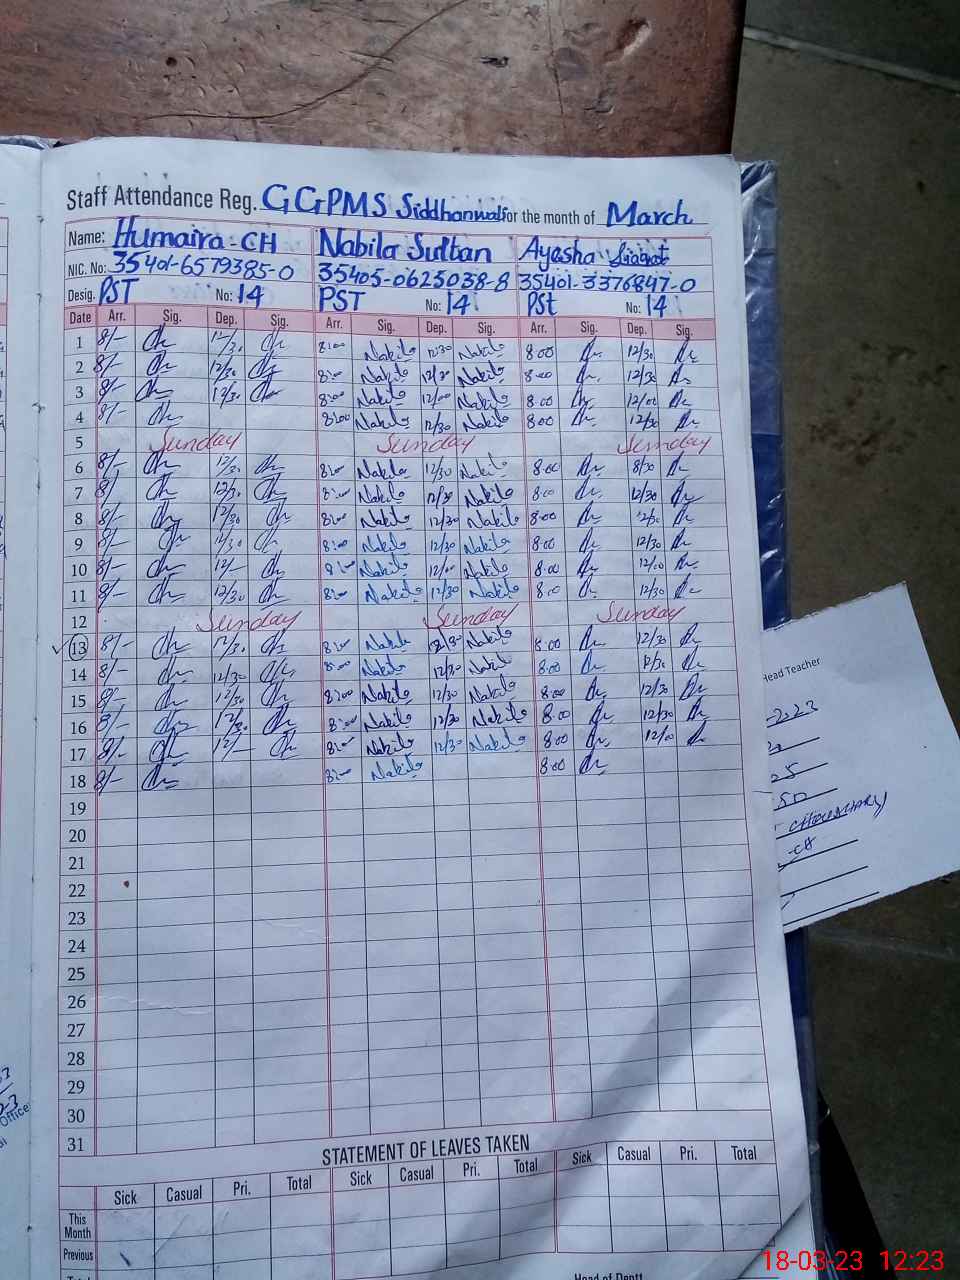 Staff Attendance Reg. GGPMS Siddhanwali for the month of March
Name: Humaira-CH Nabila Sultan Ayesha Liaqat
NIC. No: 35401-6579385-0 35405-0625038-8 35401-3376847-0
Desig. PST No: 14 PST No: 14 PSt No: 14
Date Arr. Sig. Dep. Sig. Arr. Sig. Dep. Sig. Arr. Sig. Dep. Sig.
1 8/- 8:00 Nabila 12:30 Nabila 8:00 12/30
2 8/- 12/30 8:00 Nabila 12/30 Nabila 8:00 12/30
3 8/- 12/30 8:00 Nabila 12/00 Nabila 8:00 12/00
4 8/- 8:00 Nabila 12/30 Nabila 8:00 12/30
5 Sunday Sunday Sunday
6 8/- 8:00 Nabila 12/30 Nabila 8:00 8/30
7 8/- 12/30 8:00 Nabila 12/30 Nabila 8:00 12/30
8 8/- 12/30 8:00 Nabila 12/30 Nabila 8:00 12/30
9 8/- 12/30 8:00 Nabila 12/30 Nabila 8:00 12/30
10 8/- 12/- 8:00 Nabila 12/00 Nabila 8:00 12/00
11 8/- 12/30 8:00 Nabila 12/30 Nabila 8:00 12/30
12 Sunday Sunday Sunday
13 8/- 12/30 8:00 Nabila Nabila 8:00 12/30
14 8/- 12/30 8:00 Nabila 12/30 Nabila 8:00 12/30
15 8/- 12/30 8:00 Nabila 12/30 Nabila 8:00 12/30
16 8/- 12/30 8:00 Nabila 12/30 Nabila 8:00 12/30
17 8/- 12/- 8:00 Nabila 12/30 Nabila 8:00 12/00
18 8/- 8:00 Nabila 8:00
19
20
21
22
23
24
25
26
27
28
29
30
31
STATEMENT OF LEAVES TAKEN
Sick Casual Pri. Total Sick Casual Pri. Total Sick Casual Pri. Total
This Month
Previous
Head of Deptt
Head Teacher
-2023
25
50
CHOUDHARY
-CH
Office
18-03-23 12:23